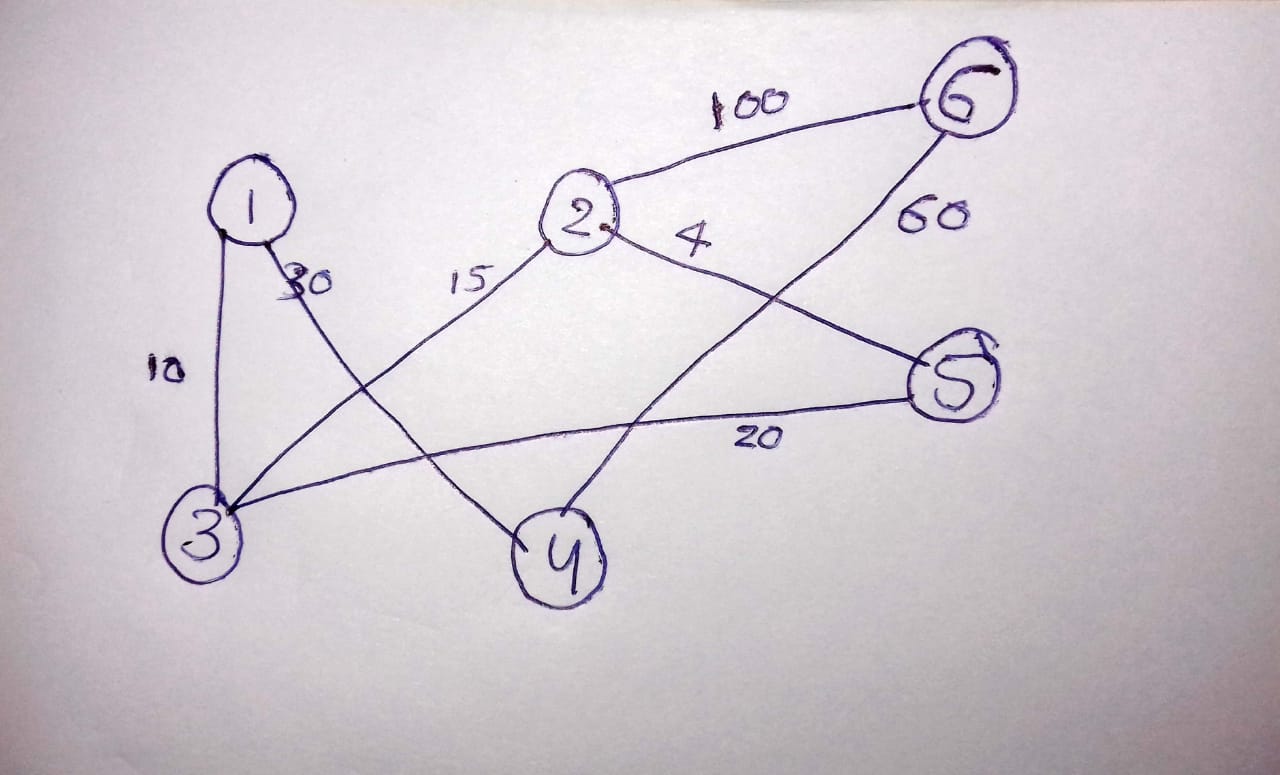 100
6
1
2
60
4
30
15
10
5
20
3
4